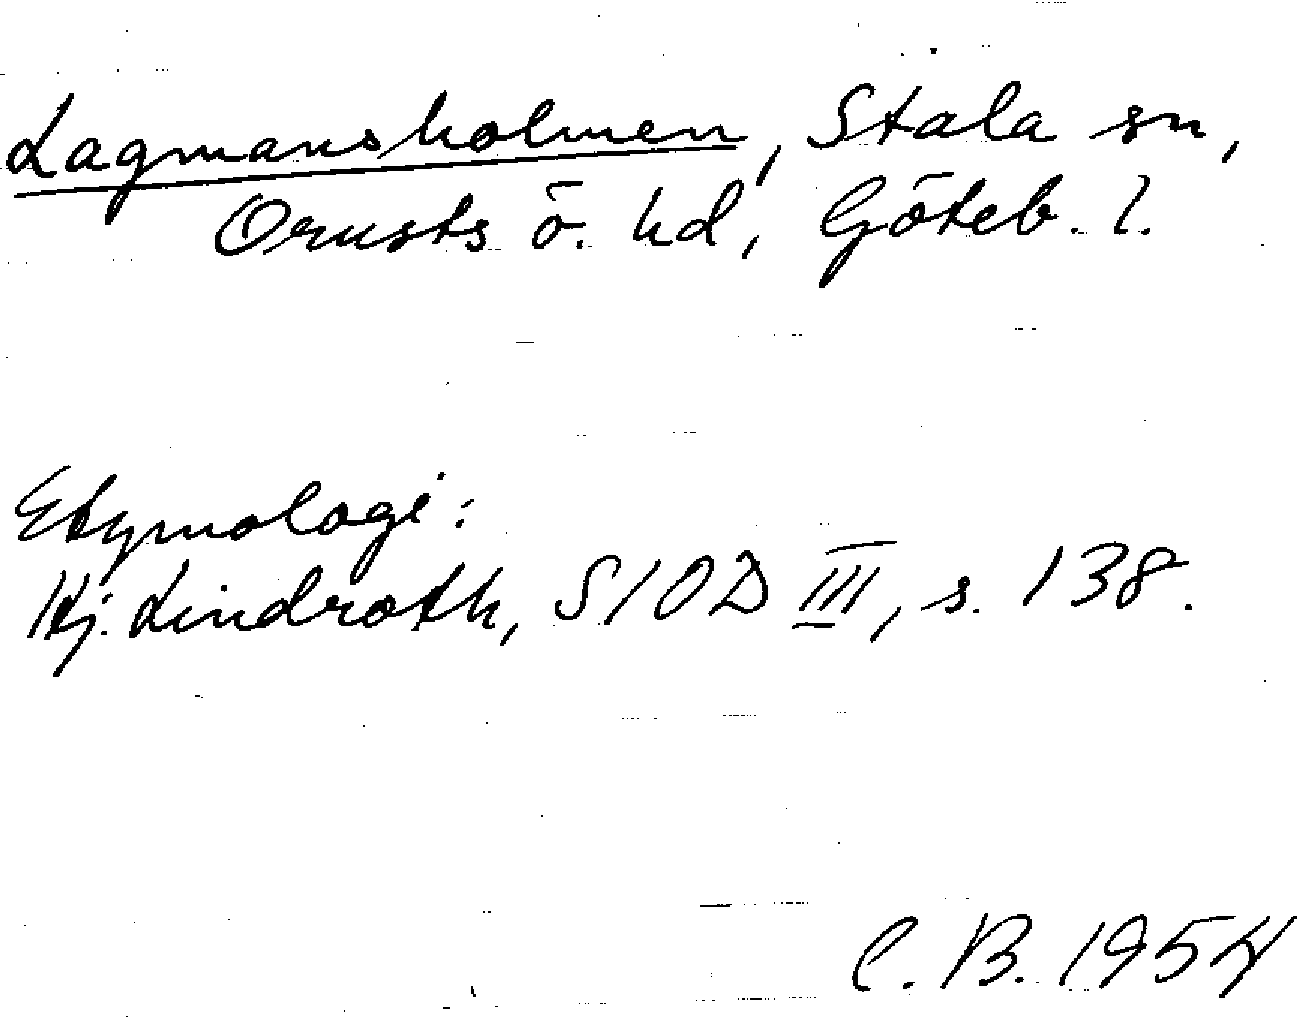 Lagmansholmen, Stala sn,
Orusts ö. hd, Göteb. l.
Etymologi:
Hj. Lindroth, SIOD III, s. 138.
C. B. 1954